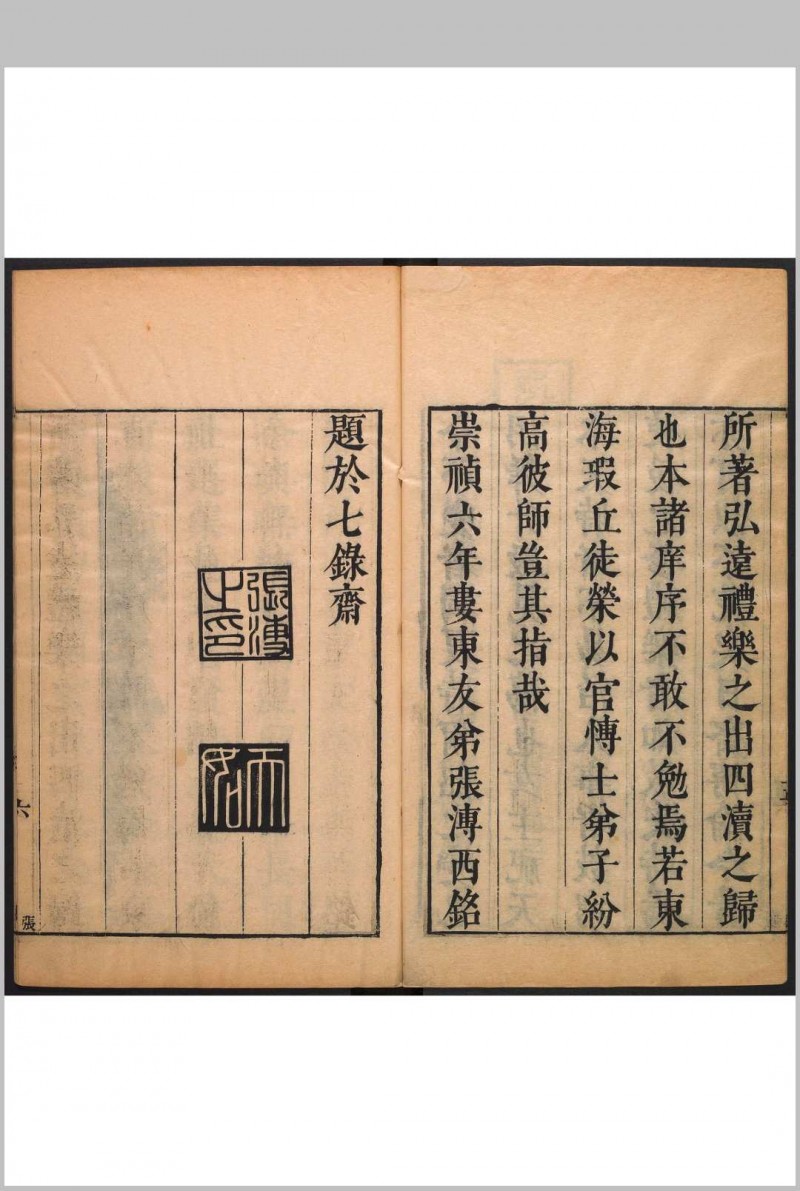 所著弘遠禮樂之出四瀆之歸
也本諸庠序不敢不勉焉若東
海瑕丘徒榮以官愽士弟子紛
高彼師豈其指哉
崇禎六年婁東友弟張溥西銘
題於七錄齋
張溥之印
天如
六
張